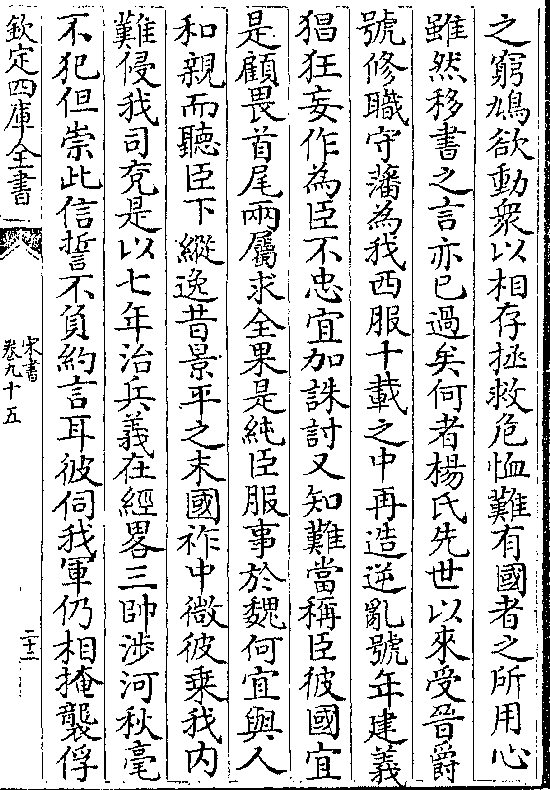 之窮鳩欲動衆以相存拯救危恤難有國者之所用心
雖然移書之言亦已過矣何者楊氏先世以來受晉爵
號修職守藩為我西服十載之中再造逆亂號年建義
猖狂妄作為臣不忠宜加誅討又知難當稱臣彼國宜
是顧畏首尾兩屬求全果是純臣服事於魏何宜與人
和親而聽臣下縱逸昔景平之末國祚中微彼乗我内
難侵我司兖是以七年治兵義在經畧三帥渉河秋毫
不犯但崇此信誓不負約言耳彼伺我軍仍相掩襲俘
欽定四庫全書
宋書
卷九十五
二十二